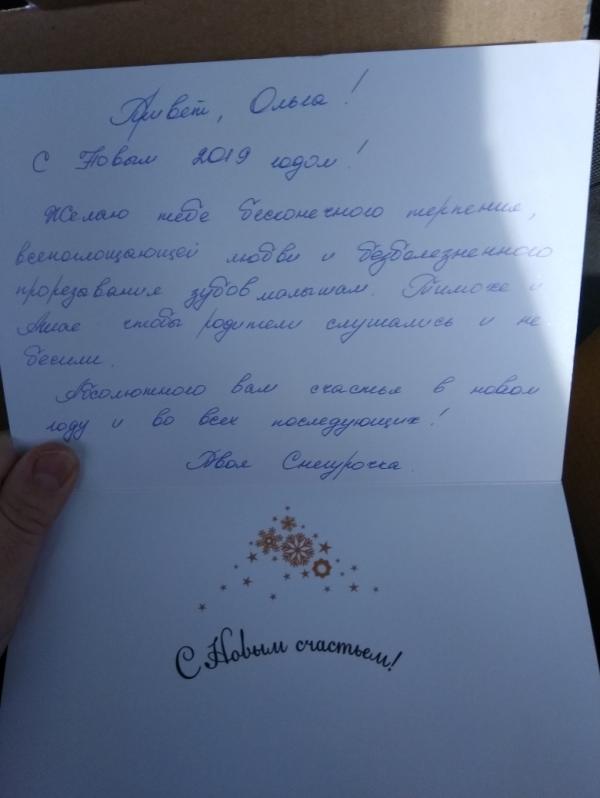 Привет, Ольга!
С Новым 2019 годом!
Желаю тебе бесконечного терпения,
всепоглощающей любви и безболезненного
прорезавания зубов малышам. Тимохе и
чтобы родители слушались и не
бесили.
Абсолютного вам счастья в новом
году и во всех последующих!
Твоя Снегурочка.
С Новым счастьем!